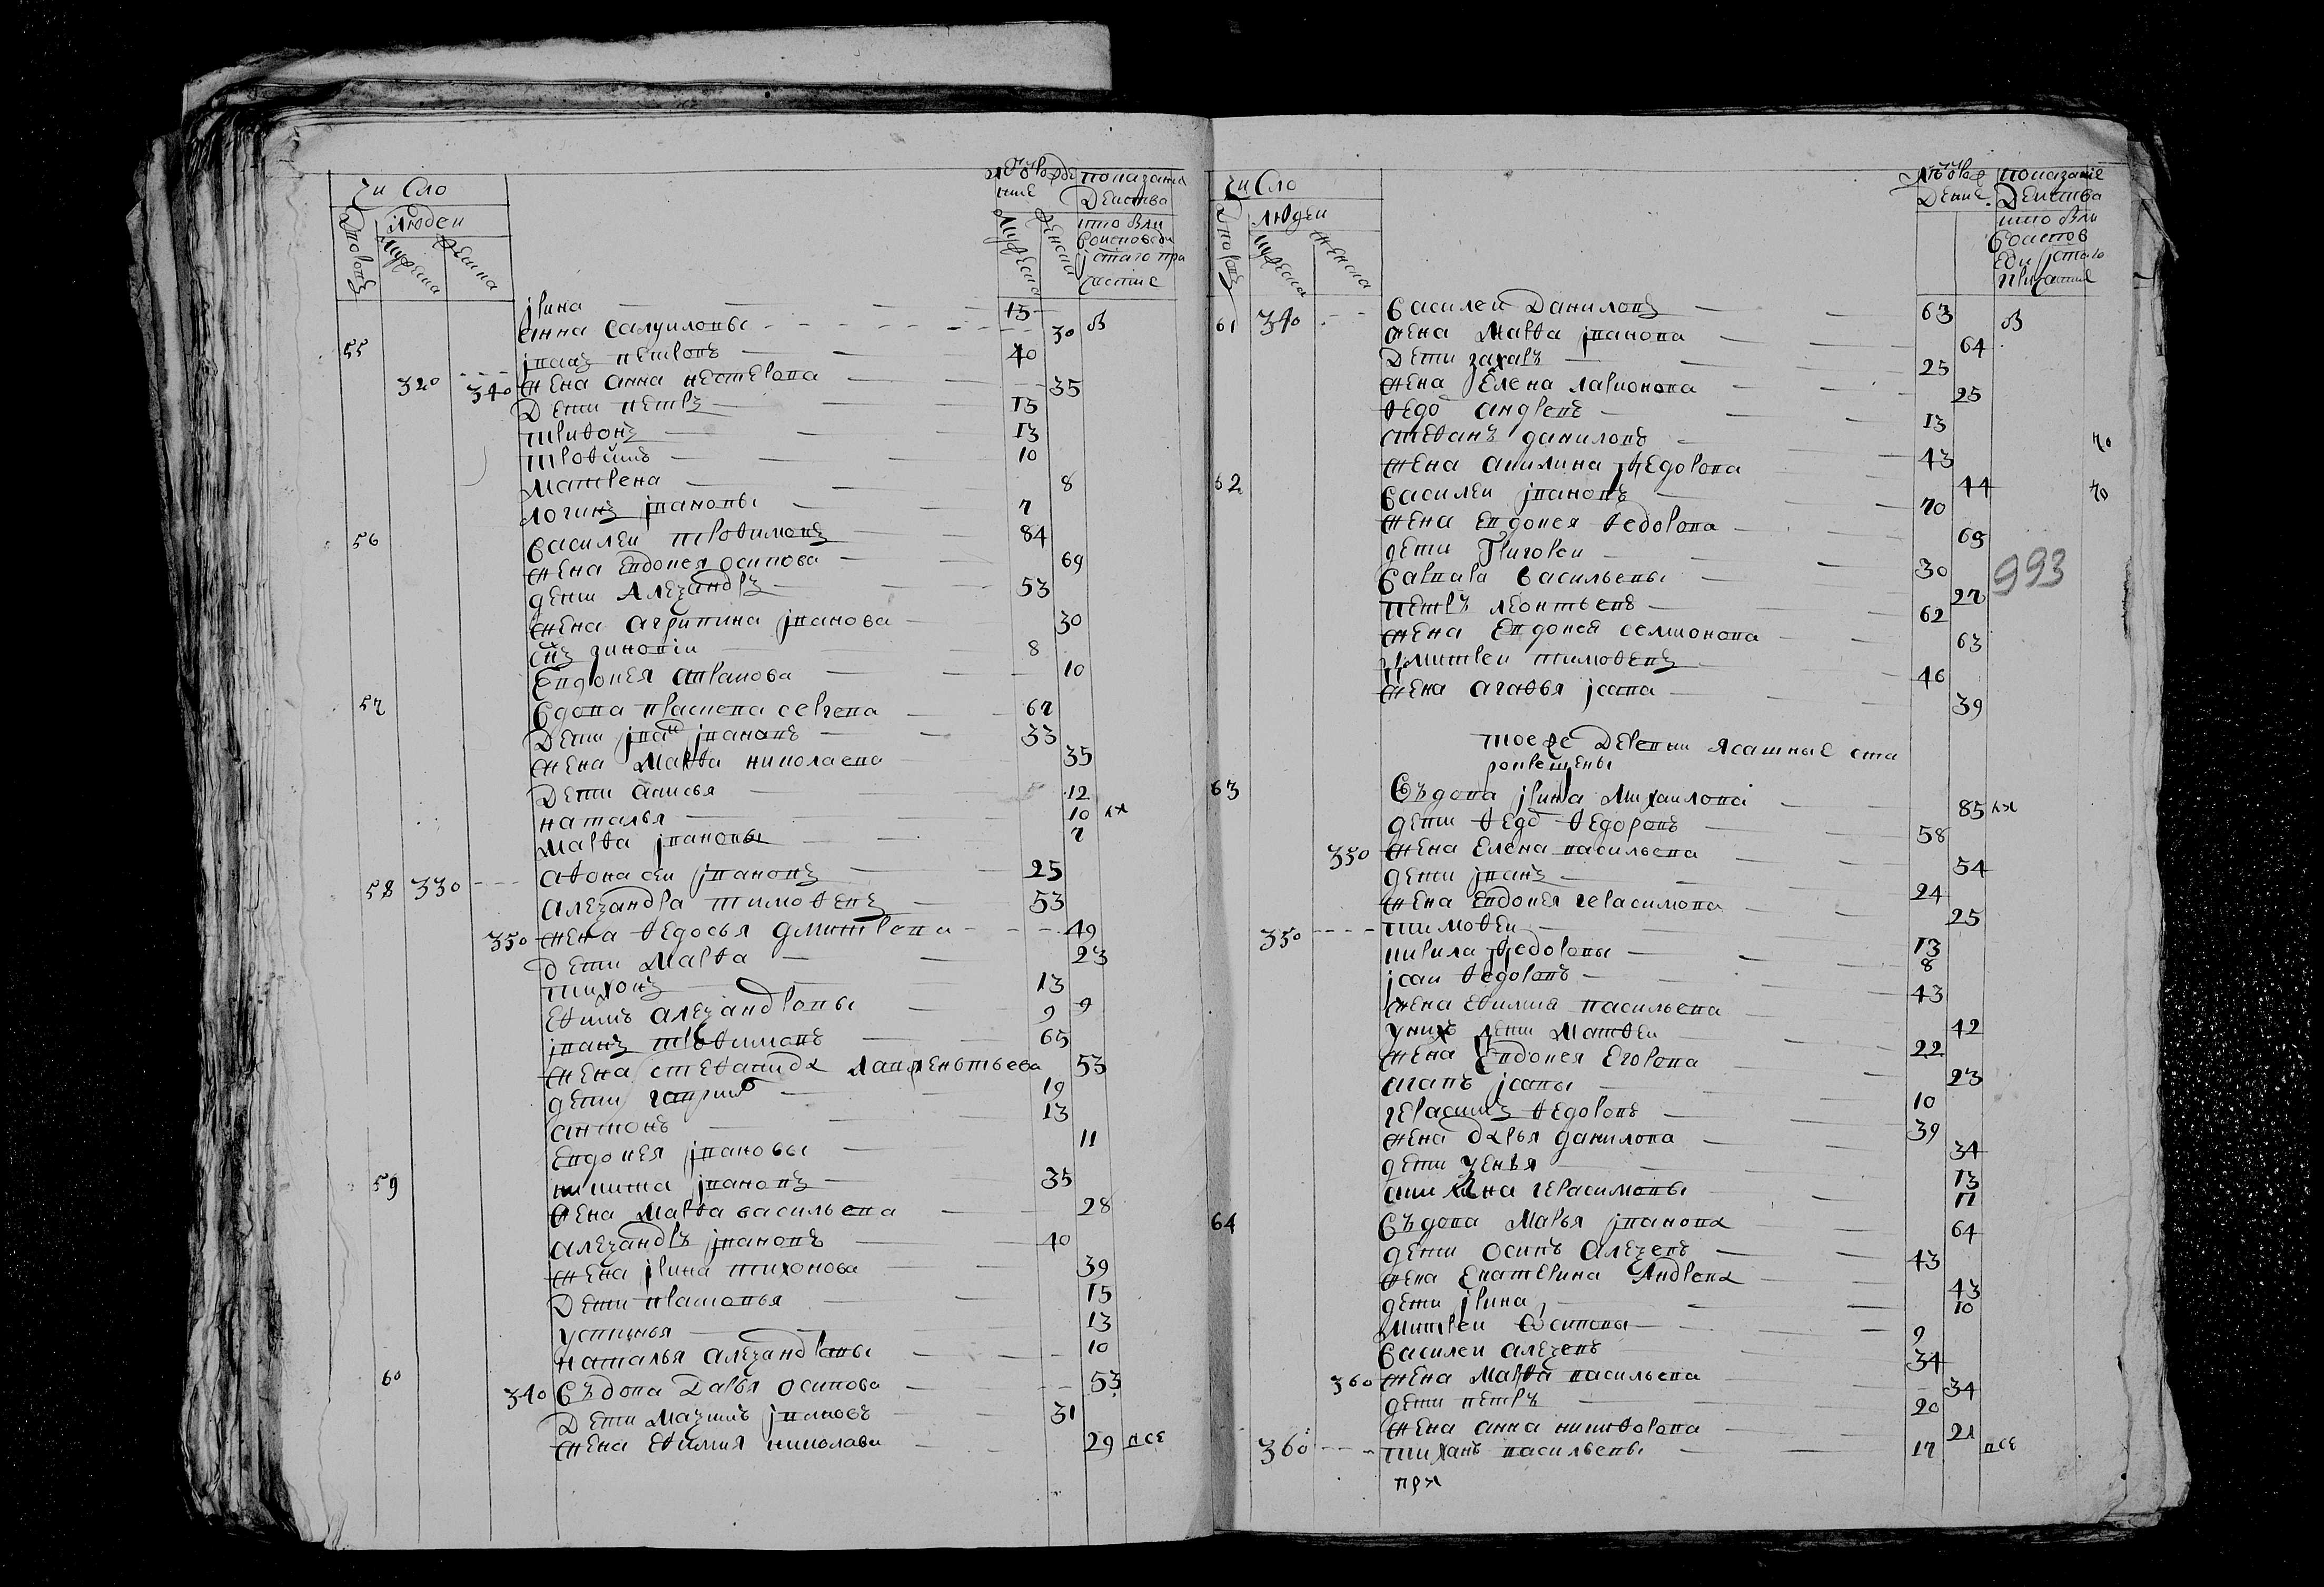 Число
Людей
Дворовъ
Мужеска
Женска
Показание
Действа
кто был
у исповеди
и святаго при
частие
Мужеска
Женска
Ирина 15
Анна Самуиловы 30
55 Иванъ Петровъ 40
320 340 жена Анна Нестерова 35
Дети Петръ 15
Тритонъ 13
Трофимъ 10
Матрена 8
Логинъ Ивановы 7
56 Василей Трофимовъ 84
жена Евдокея Осипова 69
дети Алезандръ 53
жена Агрипина Иванова 30
снъ Зиновiи 8
Евдокея 10
57 Вдова Прасковя 67
Дети Иван Ивановъ 33
жена Марфа Николаева 35
Дети Анисья 12
Наталья 10
Марфа Ивановы 7
58 330 Афонасеи Ивановъ 25
Алезандра Тимофевъ 53
350 жена Федосья Дмитрева 49
дети Марфа 23
Тихонъ 13
Ефимъ Алезандровы 9 9
Иванъ Трофимовъ 65
жена Стефанида Лаврентьева 53
дети 19
Антонъ 13
Евдокея Ивановы 11
59 Никита Ивановъ 35
жена Марфа Васильева 28
Алезандръ Ивановъ 40
жена Ирина Тихонова 39
Дети 15
Устинья 13
Наталья Алезандровы 10
60 340 Въдова Дарья Осипова 53
Дети Мазимъ Ивановъ 31
жена Ефимия Николаева 29 все
Число
Людей
Дворовъ
Мужеска
Женска
Показание
Действа
кто был
61 340 Василей Даниловъ 63
жена Марфа Иванова 64
Дети Захаръ 25
жена Елена Ларионова 25
Федо Андревъ 13
Стефанъ Даниловъ 43
жена Акилина Федорова 44
62 Василеи Ивановъ 70
жена Евдокея Федорова 65
дети Григореи 30
Варвара Васильевы 27
993
Петръ Леонтьевъ 62
жена Евдокея Семионова 63
Дмитреи Тимофевъ 46
жена Агафья 39
Тое же Деревни Ясашные ста
рокрещены
63 Въдова Ирина Михаилова 85
дети Федо Федоровъ 58
350 жена Елена Васильева 54
дети Иванъ 24
жена Евдокея Герасимова 25
350 Тимофеи 13
Кирила Федоровы 8
Федоровъ 43
жена Ефимия Васильева 42
У них дети Матвеи 22
жена Евдокея Егорова 23
Агапъ 10
Герасимъ Федоровъ 39
жена Дарья Данилова 34
дети 13
Герасимовы 11
64 Въдова Марья Иванова 64
дети Осипъ Алезевъ 43
жена Екатерина Андрева 43
дети Ирина 10
Митреи Осиповы 9
Василеи Алезевъ 34
360 жена Марфа Васильева 34
дети Петръ 20
жена Анна Никифорова 21
360 Тиханъ Васильевы 17 все